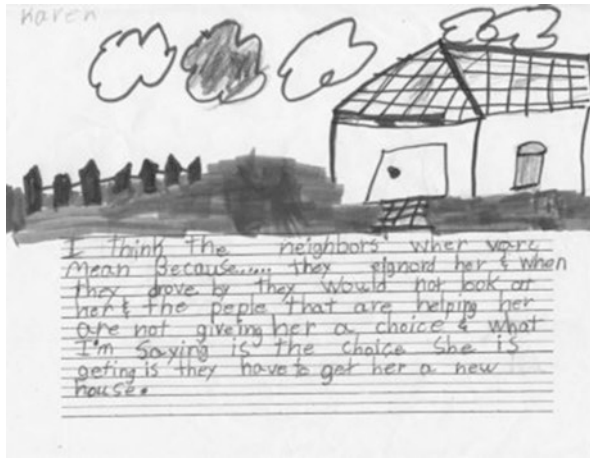 Karen
I think the neighbors wher varc
Mean Because..... they eignord her & when
they drove by they would not look at
her & the peple that are helping her
are not giveing her a choice & what
I'm saying is the choice she is
geting is they have to get her a new
house.